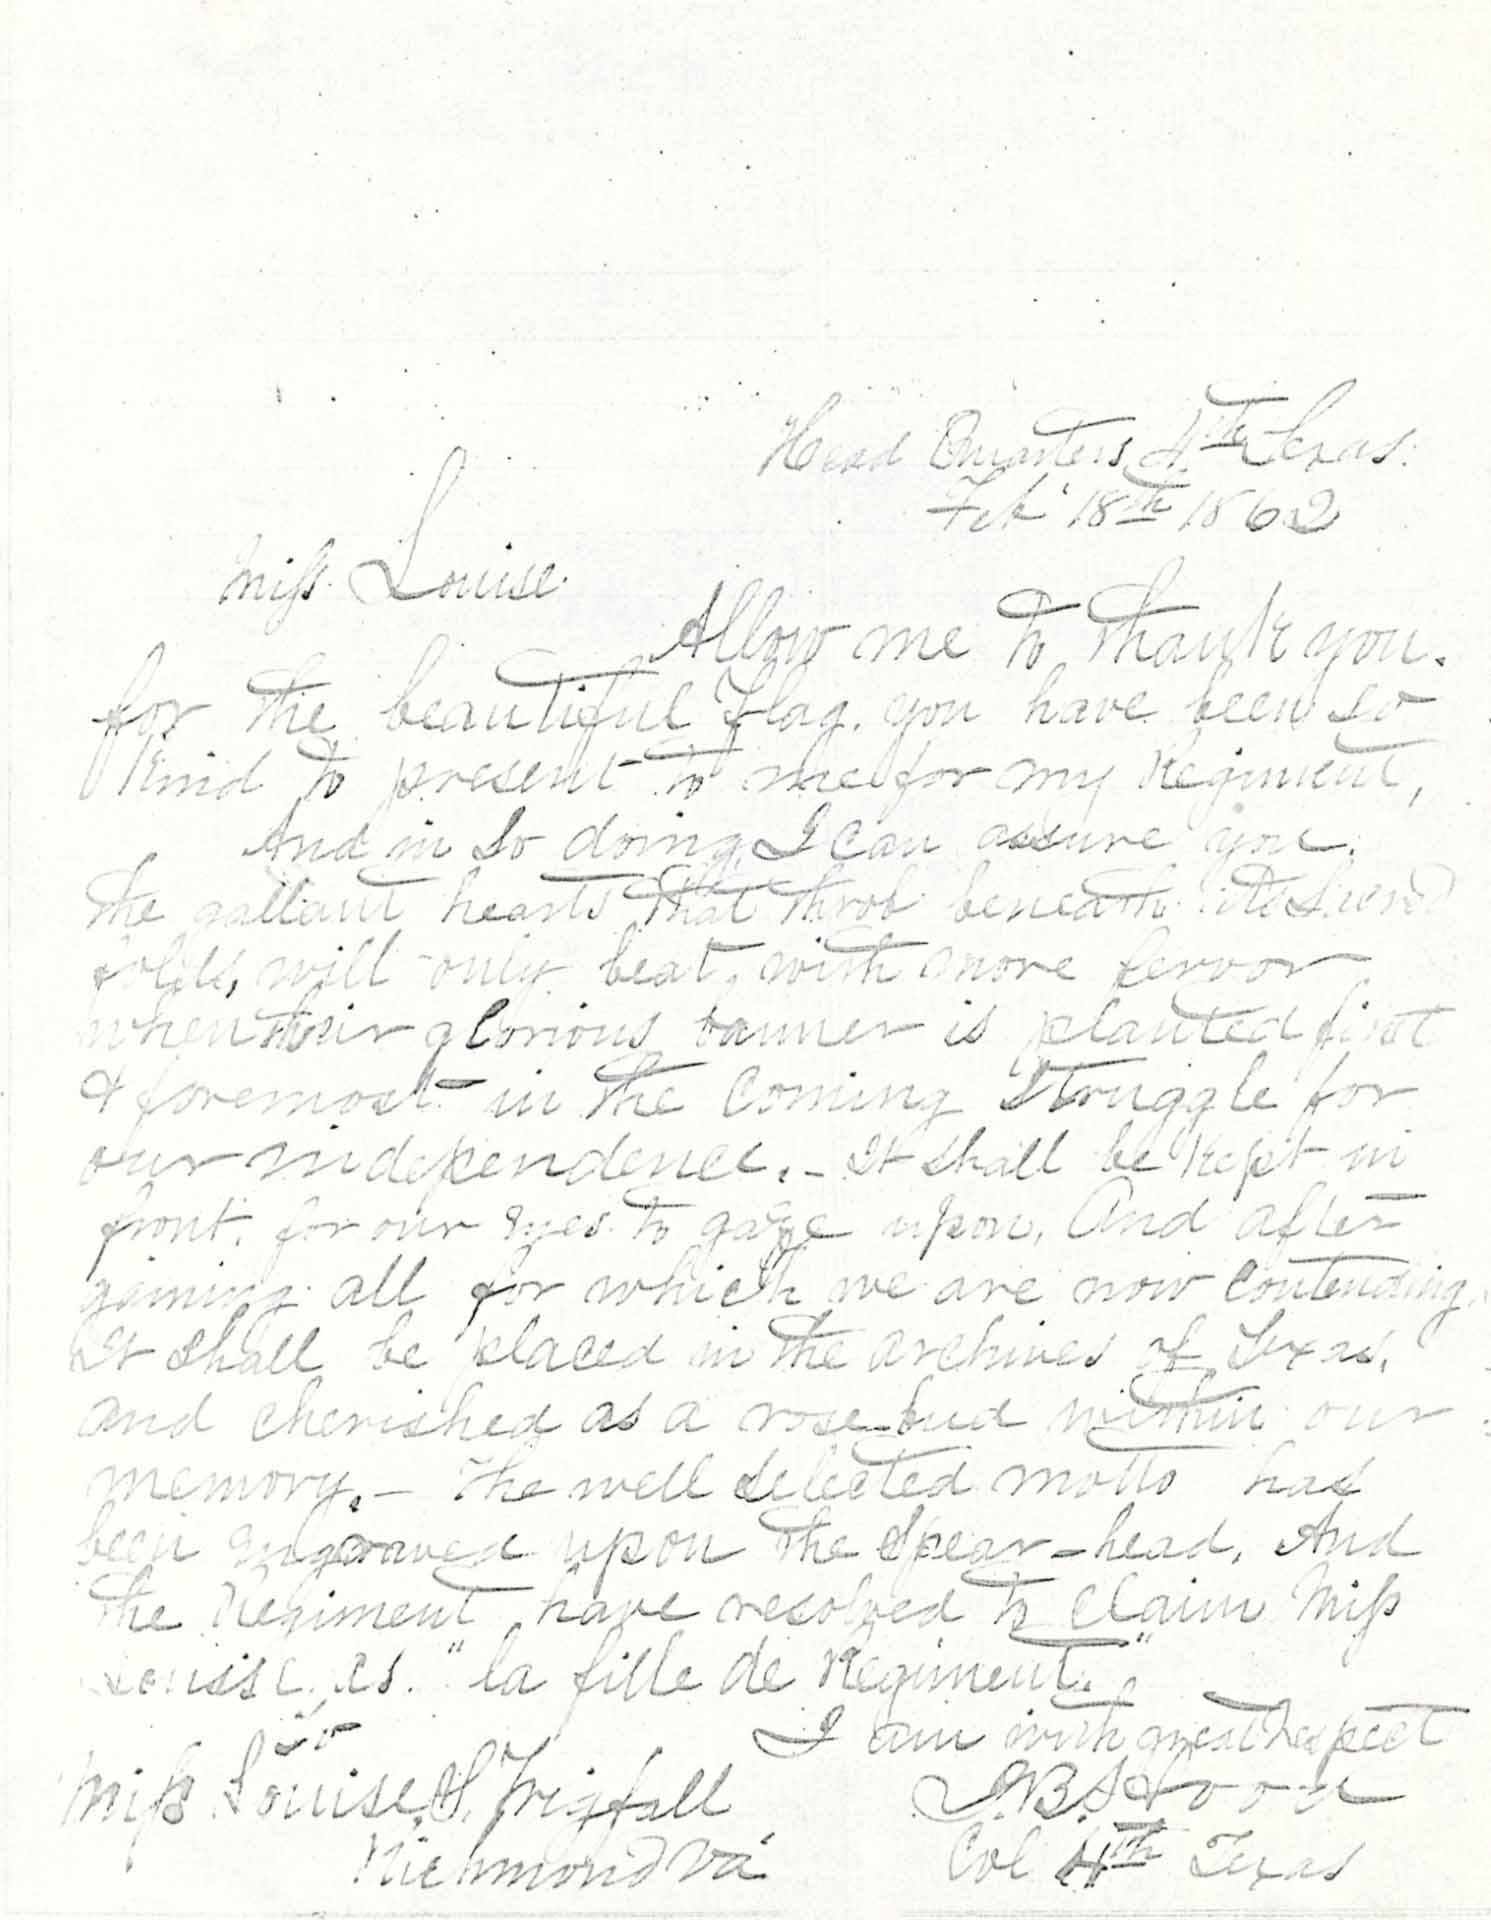 Head Quarters 4th Texas.
Feb' 18th 1862
Miss. Louise.
Allow me to thank you.
for the beautiful Flag. you have been so
kind to present to me for my Regiment,
And in so doing, I can assure you.
the gallant hearts that throb beneath its sacred
folds, will only beat, with more fervor
when their glorious banner is planted first
& foremost in the coming struggle for
our independence. - It shall be kept in
front. for our eyes to gaze upon, And after
gaining all for which we are now contending.
It shall be placed in the archives of Texas,
and cherished as a rose-bud within our
memory. - The well selected motto has
been engraved upon the spear-head, And
the Regiment, have resolved to claim Miss
Louise. as. "la fille de Regiment."
I am with great respect
To
J. B. Hood
Miss Louise. S. Wigfall
Col 4th Texas
Richmond Va.